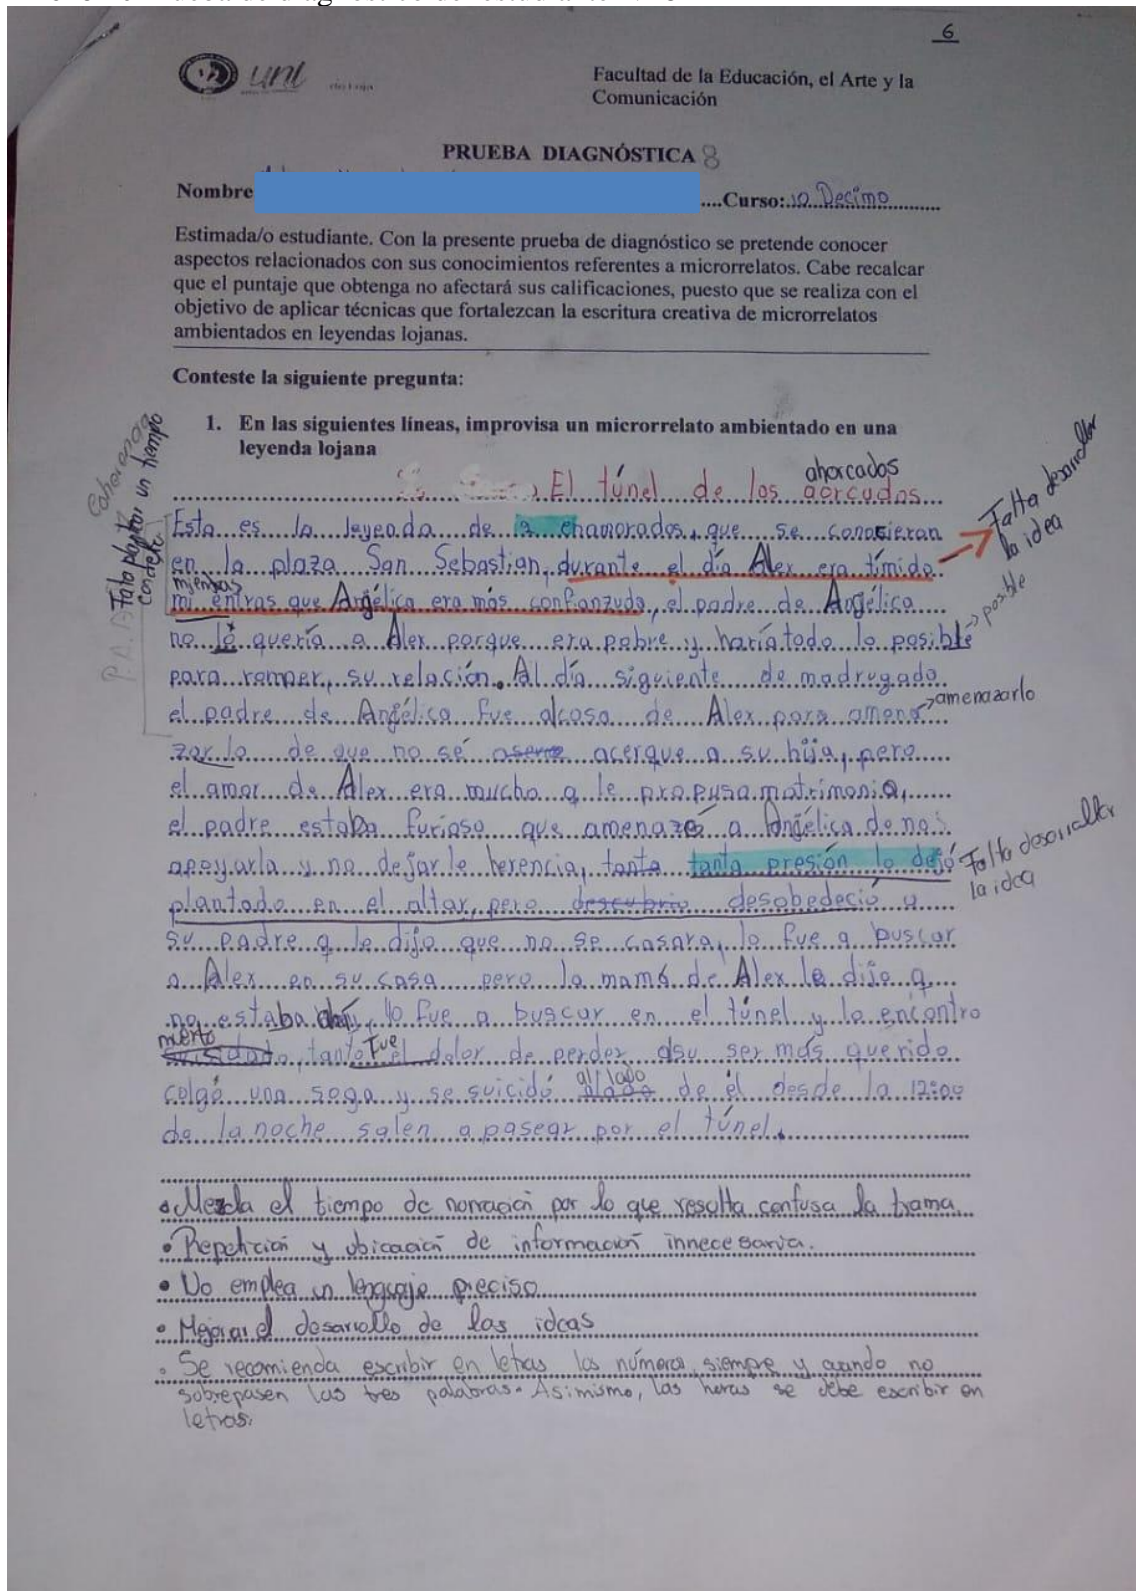 6
unl
Facultad de la Educación, el Arte y la
Comunicación
PRUEBA DIAGNÓSTICA 8
Nombre ....Curso:.10 Decimo
Estimada/o estudiante. Con la presente prueba de diagnóstico se pretende conocer
aspectos relacionados con sus conocimientos referentes a microrrelatos. Cabe recalcar
que el puntaje que obtenga no afectará sus calificaciones, puesto que se realiza con el
objetivo de aplicar técnicas que fortalezcan la escritura creativa de microrrelatos
ambientados en leyendas lojanas.
Conteste la siguiente pregunta:
1. En las siguientes líneas, improvisa un microrrelato ambientado en una
leyenda lojana
ahorcados
El túnel de los aorcados
Esta es la leyenda de 2 enamorados, que se conocieron
Falta desarrollar
la idea
en la plaza San Sebastian, durante el día Alex era tímido
mientras
mi entras que Angélica era más confianzuda, el padre de Angélica
no lo quería a Alex porque era pobre y haría todo lo posible
posible
para romper, su relación. Al día siguiente de madrugada
el padre de Angélica fue alcasa de Alex para amena
amenazarlo
zar lo de que no sé acerque a su hija, pero
el amor de Alex era mucho q le propusa matrimonio,
el padre estaba furioso que amenazó a Angélica de no
apoyarla y no dejarle herencia, tanta tanta presión lo dejó
Falta desarrollar
la idea
plantado en el altar, pero descubrio desobedeció a
su padre q le dijo que no se casara, lo fue a buscar
a Alex en su casa pero la mamá de Alex le dijo q
no estaba ahí, lo fue a buscar en el túnel y lo encontro
muerto
tanto Fue el dolor de perder asu ser más querido
colgó una soga y se suicidó al lado de él desde la 12:00
de la noche salen a pasear por el túnel.
Coherencia
Falta plantear un tiempo
concreto
• Mezcla el tiempo de narración por lo que resulta confusa la trama
• Repetición y ubicación de información innecesaria.
• No emplea un lenguaje preciso
• Mejorar el desarrollo de las ideas
• Se recomienda escribir en letras los números, siempre y cuando no
sobrepasen las tres palabras. Asimismo, las horas se debe escribir en
letras.